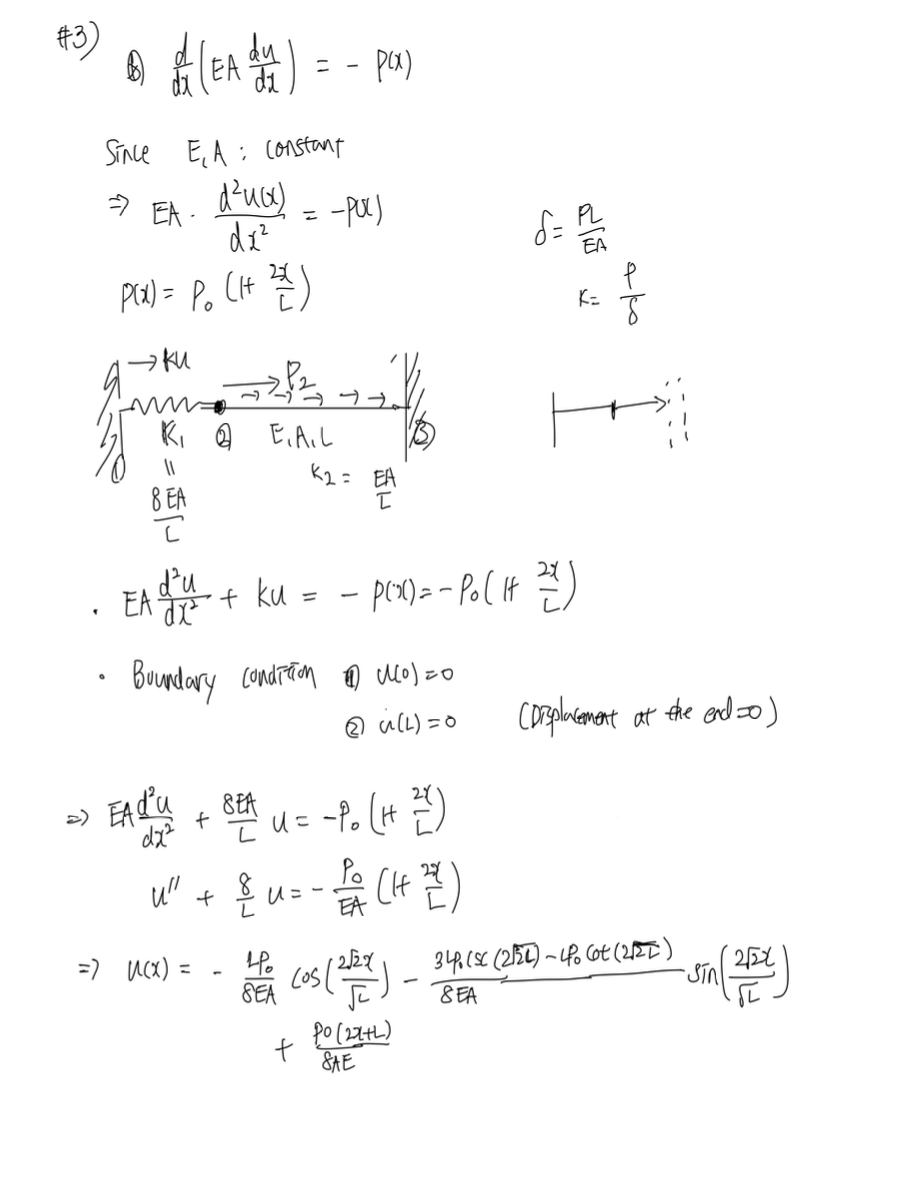 #3)
① d/dx (EA du/dx) = - P(x)
Since E, A : constant
⇒ EA · d²u(x)/dx² = -P(x)
δ = PL/EA
P(x) = P₀ (1+ 2x/L)
K = P/δ
→ ku
P₂
K₁ ② E, A, L ③
①
" 8EA/L
K₂ = EA/L
· EA d²u/dx² + ku = - P(x) = -P₀ (1+ 2x/L)
· Boundary condition ① u(0)=0
② u(L)=0 (Displacement at the end=0)
⇒ EA d²u/dx² + 8EA/L u = -P₀ (1+ 2x/L)
u'' + 8/L u = - P₀/EA (1+ 2x/L)
⇒ u(x) = - LP₀/8EA cos(2√2x/√L) - 3LP₀ csc(2√2L) - LP₀ cot(2√2L)/8EA sin(2√2x/√L)
+ P₀(2x+L)/8AE